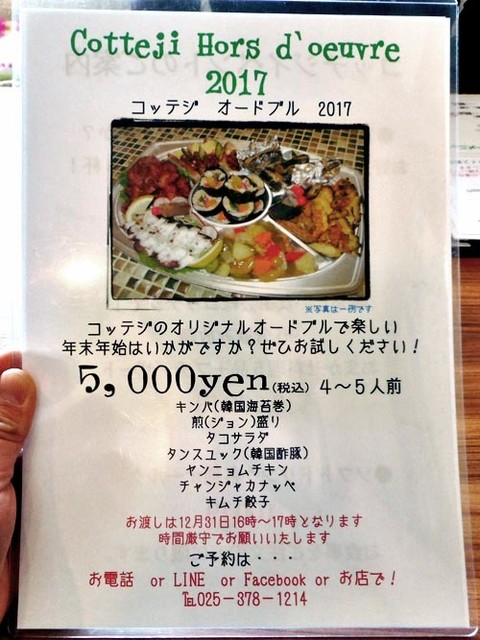 Cotteji Hors d`oeuvre
2017
コッテジ オードブル 2017
※写真は一例です
コッテジのオリジナルオードブルで楽しい
年末年始はいかがですか？ぜひお試しください！
5,000yen(税込) 4〜5人前
キンパ(韓国海苔巻)
煎(ジョン)盛り
タコサラダ
タンスユック(韓国酢豚)
ヤンニョムチキン
チャンジャカナッペ
キムチ餃子
お渡しは12月31日16時〜17時となります
時間厳守でお願いいたします
ご予約は・・・
お電話 or LINE or Facebook or お店で！
℡025-378-1214